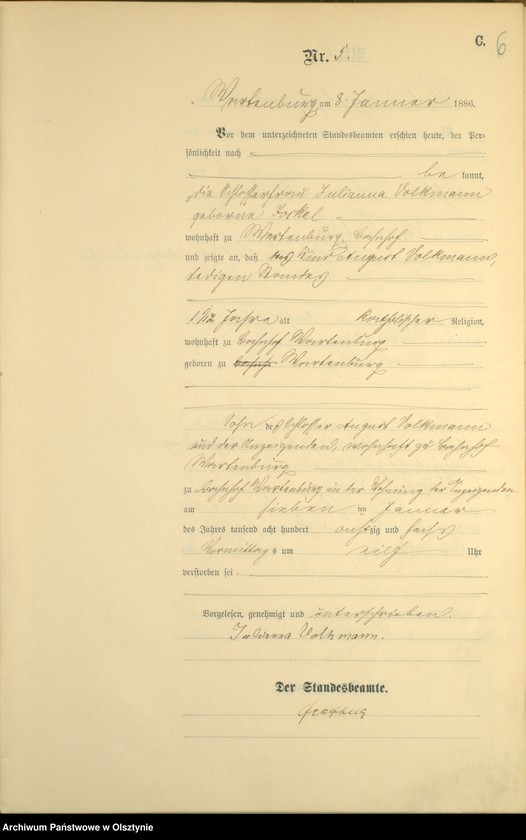 C. 6
Nr. 5.
Wartenburg am 8 Januar 1886.
Vor dem unterzeichneten Standesbeamten erschien heute, der Per-
sönlichkeit nach
be kannt,
die Schlosserfrau Julianna Volkmann
geborne
wohnhaft zu Wartenburg Bahnhof
und zeigte an, daß Kind August Volkmann,
ledigen Standes
1 1/2 Jahre alt katholischer Religion,
wohnhaft zu Bahnhof Wartenburg
geboren zu Wartenburg
Sohn des Schlosser August Volkmann
und der Anzeigenden, wohnhaft zu Bahnhof
Wartenburg
zu Bahnhof Wartenburg in der Wohnung der Anzeigenden
am sieben ten Januar
des Jahres tausend acht hundert achtzig und sechs
Vormittags um eilf Uhr
verstorben sei.
Vorgelesen, genehmigt und unterschrieben.
Julianna Volkmann.
Der Standesbeamte.
Archiwum Państwowe w Olsztynie